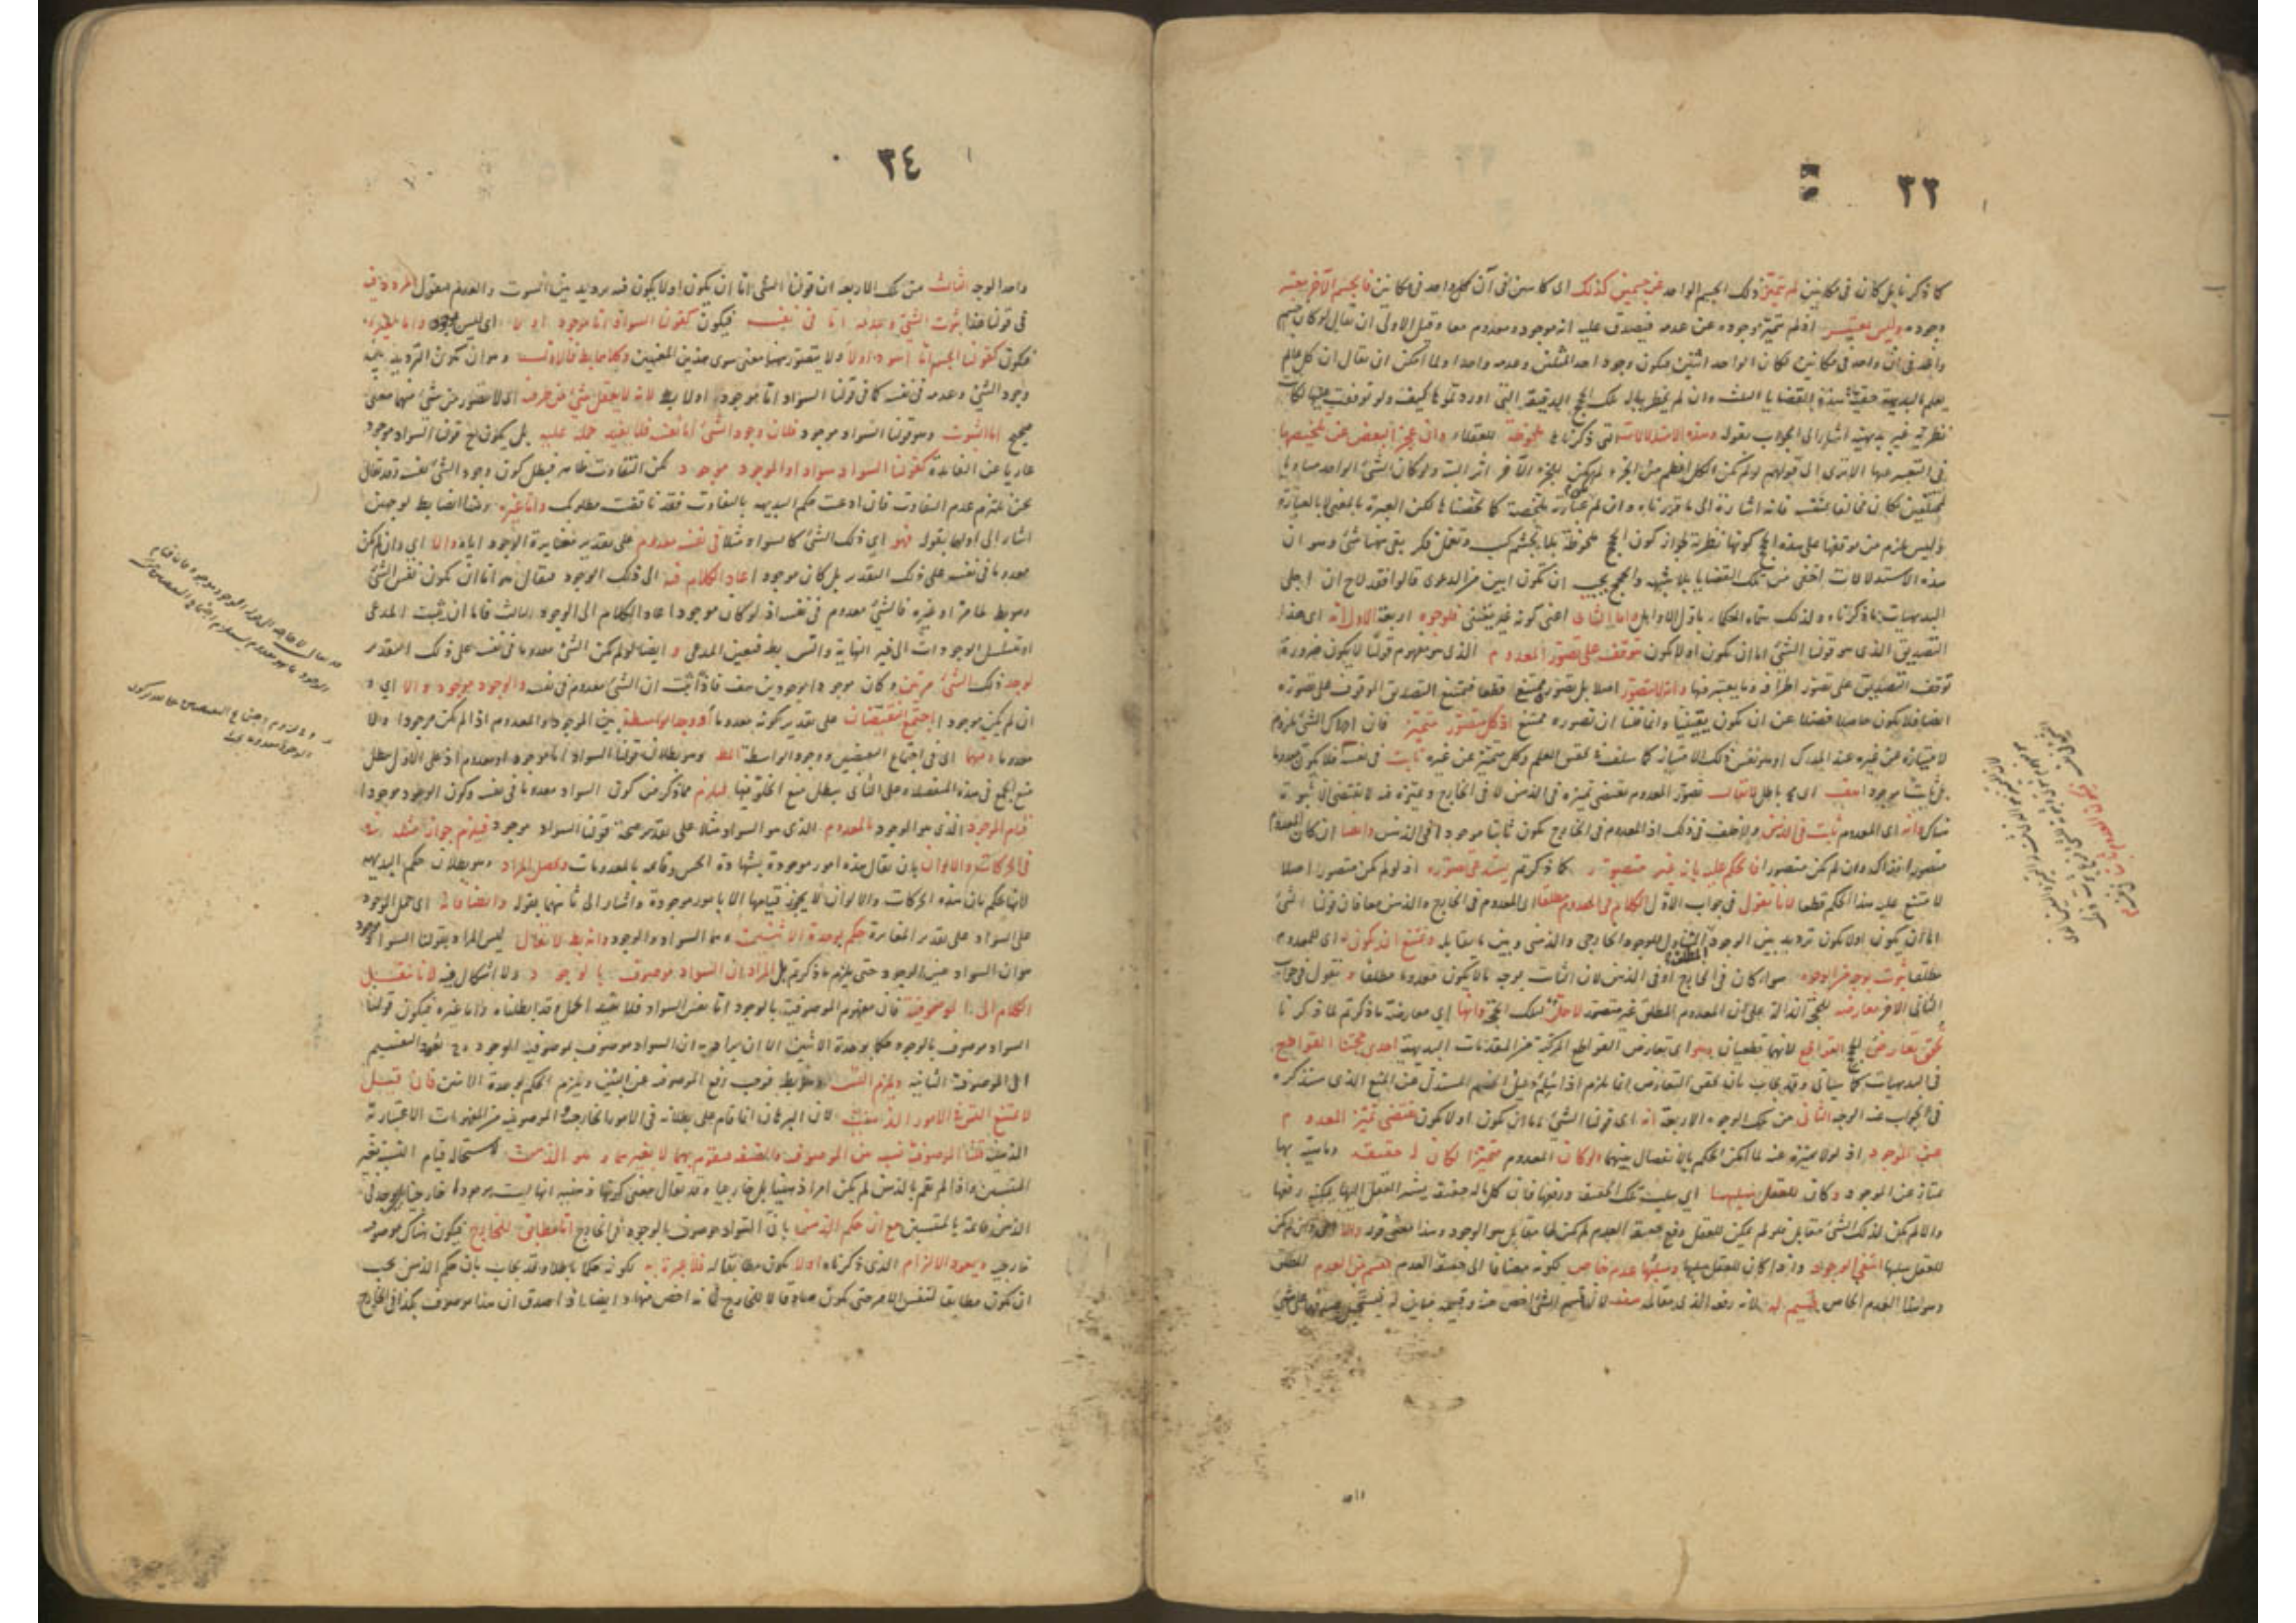 ٣٣
كما ذكرنا بل كان في مكانين لم يتميز ذلك الجسم الواحد عن جسمين كذلك اي كائنين في آن كل واحد في مكانين فالجسم الآخر يعتبر
وجوده وليس يعتبر اذ لم يتميز وجوده عن عدمه فيصدق عليه انه موجود ومعدوم معا وقيل الاولى ان يقال لو كان جسم
واحد في آن واحد في مكانين لكان الواحد اثنين فيكون وجود احد المثلين وعدمه واحدا ولما امكن ان يقال ان كل عالم
يعلم بالبديهة حقية هذه القضايا الثلث وان لم يخطر بباله تلك الحجج الدقيقة التي اوردتموها كيف ولو توقفت عليها لكانت
نظرية غير بديهية اشار الى الجواب بقوله وهذه الاستدلالات التي ذكرناها ملحوظة للعقلاء وان عجز البعض عن تلخيصها
في التعبير عنها الا ترى الى قولهم لو لم يكن الكل اعظم من الجزء لم يكن للجزء الآخر اثر البتة ولو كان الشئ الواحد مساويا
لمختلفين لكان مخالفا لنفسه فانه اشارة الى ما قررناه وان لم عبارته ملخصة كما لخصناها لكن العبرة بالمعنى لا بالعبارة
وليس يلزم من توقفها على هذه الحجج كونها نظرية لجواز كون الحجج ملحوظة بلا تجشم كسب وتعمل فكر بقي ههنا شئ وهو ان
هذه الاستدلالات اخفى من تلك القضايا بلا شبهة والحجج يجب ان تكون ابين من الدعوى قالوا فقد لاح ان اجلى
البديهيات ما ذكرناه ولذلك سماه الحكماء باول الاوايل واما الثاني اعني كونه غير يقيني فلوجوه اربعة الاول انه اي هذا
التصديق الذي هو قولنا الشئ اما ان يكون او لا يكون يتوقف على تصور المعدوم الذي هو مفهوم قولنا لا يكون ضرورة
توقف التصديق على تصور اطرافه وما يعتبر فيها وانه لا يتصور اصلا بل تصوره ممتنع قطعا فيمتنع التصديق الموقوف على تصوره
ايضا فلا يكون حاصلا فضلا عن ان يكون يقينيا وانما قلنا ان تصوره ممتنع اذ كل متصور متميز فان ادراك الشئ ملزوم
لامتيازه عن غيره عند المدرك او هو نفس ذلك الامتياز كما سلف في تحقيق العلم وكل متميز عن غيره ثابت في نفسه فلا يكون معدوما
بل ثابتا موجودا هف اي باطل لا يقال تصور المعدوم يقتضي تميزه في الذهن لا في الخارج وتميزه فيه لا يقتضي الا ثبوته
هناك وانه اي المعدوم ثابت في الذهن ولا خلف في ذلك اذ المعدوم في الخارج يكون ثابتا موجودا في الذهن وايضا ان كان المعدوم
متصورا فذاك وان لم يكن متصورا فالحكم عليه بانه غير متصور كما ذكرتم يستدعي تصوره اذ لو لم يكن متصورا اصلا
لامتنع عليه هذا الحكم قطعا لانا نقول في جواب الاول الكلام في المعدوم مطلقا اي المعدوم في الخارج والذهن معا فان قولنا الشئ
اما ان يكون او لا يكون ترديد بين الوجود المطلق الشامل للوجود الخارجي والذهني وبين ما يقابله ويمتنع ان يكون له اي للمعدوم
مطلقا ثبوت بوجه من الوجوه سواء كان في الخارج او في الذهن لان الثابت بوجه ما لا يكون معدوما مطلقا ونقول في جواب
الثاني الامر معارضة للحجة الدالة على ان المعدوم المطلق غير متصور لا حل لتلك الحجة وانها اي معارضة ما ذكرتم لما ذكرنا
تحقق تعارض الحجج القواطع لانهما قطعيان وهو اي تعارض القواطع المركبة من المقدمات البديهية احدى حججنا القوادح
في البديهيات كما سيأتي وقد يجاب بان تحقق التعارض انما يلزم اذا سلم دليل الخصم المستدل عن المنع الذي سنذكره
في الجواب عنه الوجه الثاني من تلك الوجوه الاربعة انه اي قولنا الشئ اما ان يكون او لا يكون يقتضي تميز المعدوم
عن الموجود اذ لولا تميزه عنه لما امكن الحكم بالانفصال بينهما ولو كان المعدوم متميزا لكان له حقيقة وماهية بها
يمتاز عن الموجود وكان للعقل سلبها اي سلب تلك الحقيقة ورفعها فان كل ما له حقيقة يشير العقل اليها يمكنه رفعها
والا لم يكن لذلك الشئ مقابل فلو لم يمكن للعقل رفع حقيقة العدم لم يكن لها مقابل هو الوجود وهذا معنى قوله والا اي وان لم يكن
للعقل سلبها انتفى الوجود واذا كان للعقل سلبها وسلبها عدم خاص لكونه مضافا الى حقيقة العدم فقسم من العدم المطلق
وهو ايضا العدم الخاص قسيم له لانه رفعه الذي مقابله هف لان قسم الشئ اخص منه وقسيمه مباين له فيستحيل صدقهما على شئ
واحد
٣٤
واحد الوجه الثالث من تلك الاربعة ان قولنا الشئ اما ان يكون او لا يكون فيه ترديد بين الثبوت والعدم فنقول المردد فيه
في قولنا هذا ثبوت الشئ وعدمه اما في نفسه فيكون كقولنا السواد اما موجود او لا اي ليس بموجود واما لغيره
فيكون كقولنا الجسم اما اسود او لا ولا يتصور ههنا معنى سوى هذين المعنيين وكلاهما بط فالاول وهو ان يكون الترديد بين
وجود الشئ وعدمه في نفسه كما في قولنا السواد اما موجود او لا بط لانه لا يعقل شئ من طرفيه اي لا يتصور من شئ منهما معنى
صحيح اما الثبوت وهو قولنا السواد موجود فلان وجود الشئ اما نفسه فلا يفيد حمله عليه بل يكون ح قولنا السواد موجود
عاريا عن الفائدة كقولنا السواد سواد او الموجود موجود لكن التفاوت ظاهر فبطل كون وجود الشئ نفسه وقد يقال
نحن نلتزم عدم التفاوت فان ادعيت حكم البديهة بالتفاوت فقد ناقضت مطلوبك واما غيره وهذا ايضا بط لوجهين
اشار الى اولهما بقوله فهو اي ذلك الشئ كالسواد مثلا في نفسه معدوم على تقدير مغايرة الوجود اياه والا اي وان لم يكن
معدوما في نفسه على ذلك التقدير بل كان موجودا عاد الكلام فيه الى ذلك الوجود فيقال هو اما ان يكون نفس الشئ
وهو بط لما مر او غيره فالشئ معدوم في نفسه اذ لو كان موجودا عاد الكلام الى الوجود الثالث فاما ان يثبت المدعى
او يتسلسل الوجودات الى غير النهاية والتس بط فتعين المدعى وايضا لو لم يكن الشئ معدوما في نفسه على ذلك التقدير
لوجد ذلك الشئ مرتين وكان موجودا بوجودين هف فاذا ثبت ان الشئ معدوم في نفسه والوجود موجود والا اي و
ان لم يكن موجودا اجتمع النقيضان على تقدير كونه معدوما او وجد الواسطة بين الموجود والمعدوم اذا لم يكن موجودا ولا
معدوما وفيهما اي في اجتماع النقيضين ووجود الواسطة المط وهو بطلان قولنا السواد اما موجود او معدوم اذ على الاول يبطل
منع الجمع في هذه المنفصلة وعلى الثاني يبطل منع الخلو فيها فيلزم مما ذكر من كون السواد معدوما في نفسه وكون الوجود موجودا
قيام الموجود الذي هو الوجود بالمعدوم الذي هو السواد مثلا على تقدير صحة قولنا السواد موجود فيلزم جواز مثله
في الحركات والالوان بان يقال هذه امور موجودة بشهادة الحس وقائمة بالمعدومات ويحصل المراد وهو بطلان حكم البديهة
لانها تحكم بان هذه الحركات والالوان لا يجوز قيامها الا بامور موجودة واشار الى ثانيهما بقوله وايضا فانه اي حمل الوجود
على السواد على تقدير المغايرة حكم بوحدة الاثنين هما السواد والوجود وانه بط لا يقال ليس المراد بقولنا السواد موجود
هو ان السواد عين الوجود حتى يلزم ما ذكرتم بل المراد ان السواد موصوف بالوجود ولا اشكال فيه لانا ننقل
الكلام الى الموصوفية فان مفهوم الموصوفية بالوجود اما نفس السواد فلا يفيد الحمل وقد ابطلناه واما غيره فيكون قولنا
السواد موصوف بالوجود حكما بوحدة الاثنين الا ان يراد به ان السواد موصوف بموصوفية الوجود وح يعود التقسيم
الى الموصوفية الثانية ويلزم التس وهو بط فوجب رفع الموصوف عن البين ويلزم الحكم بوحدة الاثنين فان قيل
لا يمتنع التس في الامور الذهنية لان البرهان انما قام على بطلانه في الامور الخارجية والموصوفية من المفهومات الاعتبارية
الذهنية قلنا الموصوفية نسبة بين الموصوف والصفة فيقوم بهما لا بغيرهما وهو الذهن لاستحالة قيام النسبة بغير
المنتسبين واذا لم يقم بالذهن لم يكن امرا ذهنيا بل خارجيا وقد يقال معنى كونها ذهنية انها ليست موجودة خارجية بل توجد في
الذهن قائمة بالمنتسبين مع ان حكم الذهن بان السواد موصوف بالوجود في الخارج اما مطابق للخارج فيكون هناك موصوفية
خارجية ويعود الالزام الذي ذكرناه او لا يكون مطابقا له فلا عبرة به لكونه حكما باطلا وقد يجاب بان حكم الذهن يجب
ان يكون مطابقا لنفس الامر حتى يكون صادقا لا للخارج فانه اخص منها وايضا اذا صدق ان هذا موصوف بكذا في الخارج